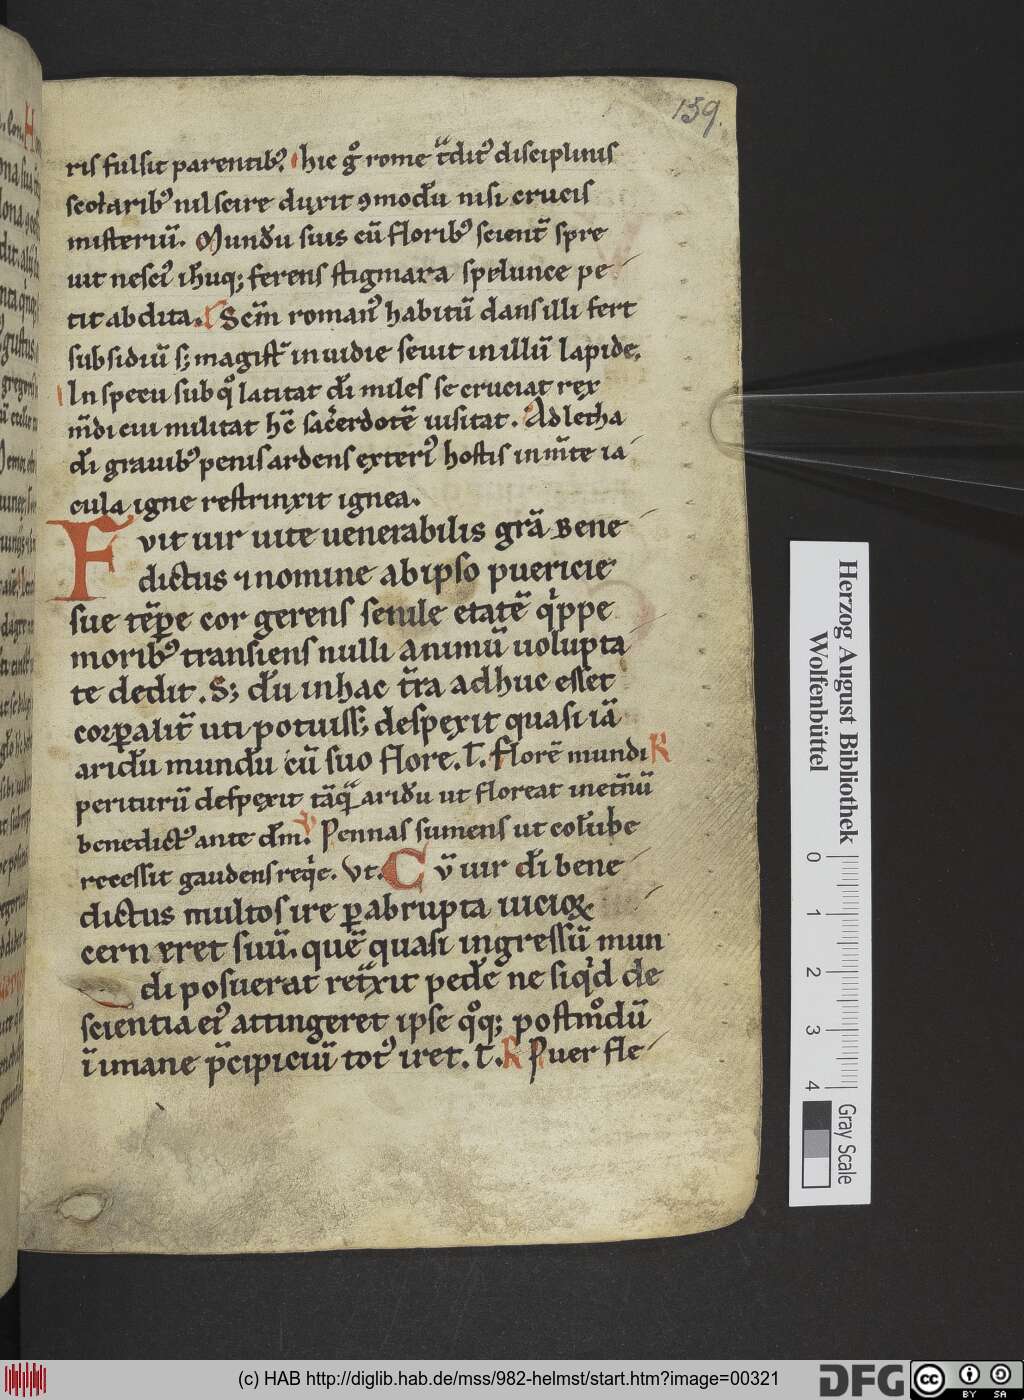 159.
ris fulsit parentib᷒. hic g̊ rome t̃dit᷒ disciplinis
scolarib᷒ nil scire duxit ꝯmodũ nisi crucis
misteriũ. Mundũ suis cũ florib᷒ scient̃ spre
uit nesci᷒ ih̃uq; ferens stigmata spelunce pe
tit abdita. Scm̃ roman᷒ habitũ dans illi fert
subsidiũ s; magist̃ inuidie seuit in illũ lapide.
In specu sub qͦ latitat dĩ miles se cruciat rex
m̃di cui militat hc̃ sacerdotẽ uisitat. Ad letha
dĩ grauib᷒ penis ardens exteri᷒ hostis in m̃te ia
cula igne restrinxit ignea.
Fvit uir uite uenerabilis gr̃a Bene
dictus ⁊ nomine ab ipso puericie
sue tẽꝑe cor gerens senile etatẽ q̍ppe
morib᷒ transiens nulli animũ uolupta
te dedit. S; dũ in hac t̃ra adhuc esset
corꝑalit̃ uti potuiss; despexit quasi iã
aridũ mundũ cũ suo flore. T̃. Florẽ mundi R
periturũ despexit tãq̃ aridũ ut floreat in et̃nũ
benedict᷒ ante dm̃. V Pennas sumens ut colũbe
recessit gaudens req̍e. Vt. Cũ uir dĩ bene
dictus multos ire ꝑ abrupta uicioꝝ
cerneret suũ. quẽ quasi ingressũ mun
di posuerat ret̃xit pedẽ ne siq̍d de
scientia ei᷒ attingeret ipse qͦq; postmͦdũ
ĩ imane p̃cipiciũ tot᷒ iret. T̃. R Puer fle
Herzog August Bibliothek
Wolfenbüttel
0 1 2 3 4
Gray Scale
(c) HAB http://diglib.hab.de/mss/982-helmst/start.htm?image=00321
DFG
cc BY SA